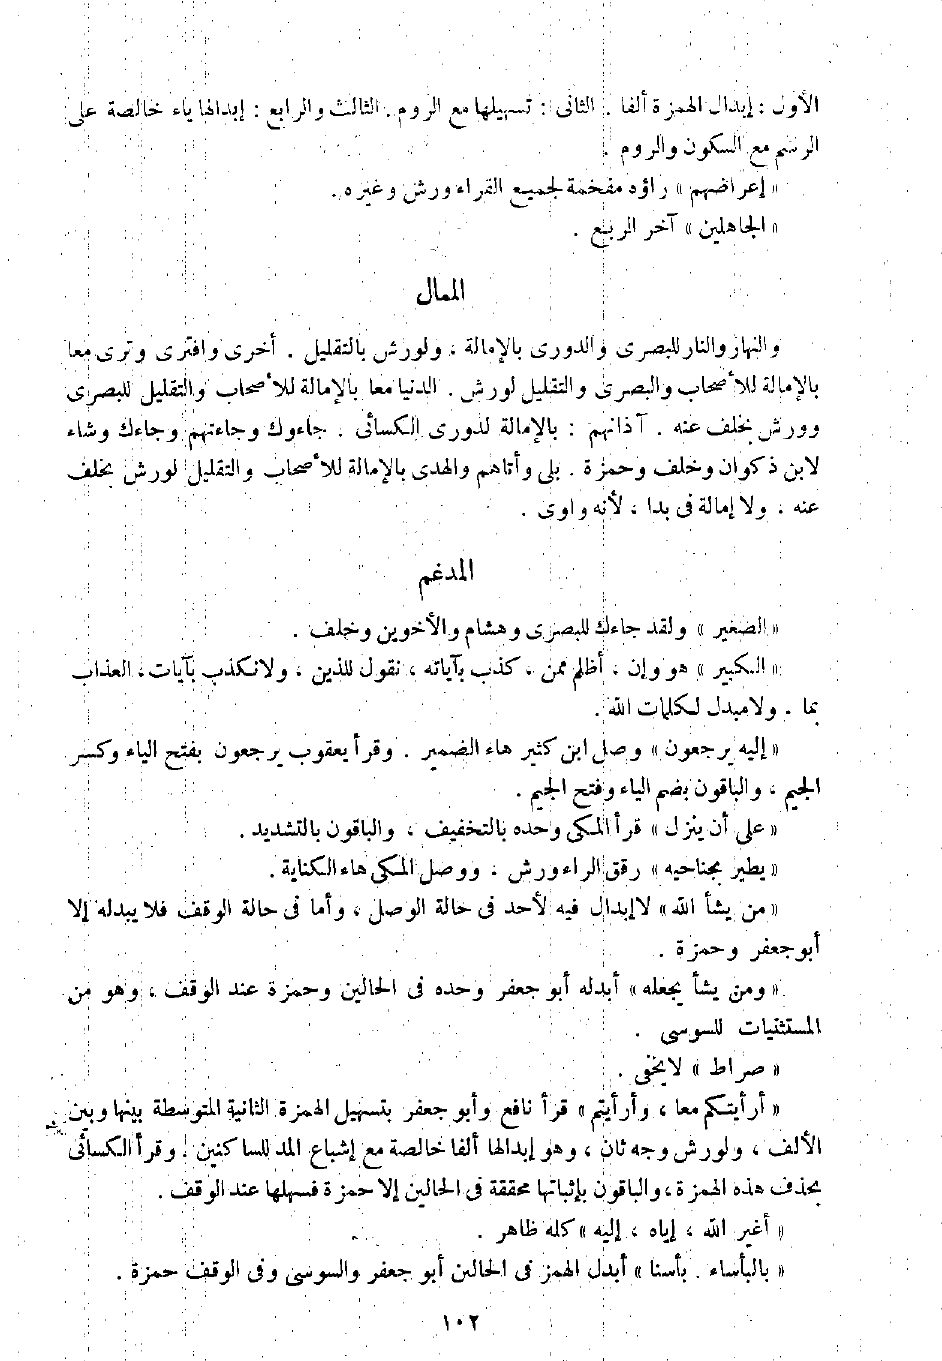 الأول : إبدال الهمزة ألفا . الثانى : تسهيلها مع الروم . الثالث والرابع : إبدالها ياء خالصة على
الرسم مع السكون والروم .
« إعراضهم » راؤه مفخمة لجميع القراء ورش وغيره .
« الجاهلين » آخر الربع .
الممال
والنهار والنار للبصرى والدورى بالإمالة ، ولورش بالتقليل . أخرى وافترى وترى معا
بالإمالة للأصحاب والبصرى والتقليل لورش . الدنيا معا بالإمالة للأصحاب والتقليل للبصرى
وورش بخلف عنه . آذانهم : بالإمالة لدورى الكسائى . جاءوك وجاءتهم وجاءك وشاء
لابن ذكوان وخلف وحمزة . بلى وأتاهم والهدى بالإمالة للأصحاب والتقليل لورش بخلف
عنه ، ولا إمالة فى بدا ، لأنه واوى .
المدغم
« الصغير » ولقد جاءك للبصرى وهشام والأخوين وخلف .
« الكبير » هو وإن ، أظلم ممن ، كذب بآياته ، نقول للذين ، ولا نكذب بآيات ، العذاب
بما . ولا مبدل لكلمات الله .
« إليه يرجعون » وصل ابن كثير هاء الضمير . وقرأ يعقوب يرجعون بفتح الياء وكسر
الجيم ، والباقون بضم الياء وفتح الجيم .
« على أن ينزل » قرأ المكى وحده بالتخفيف ، والباقون بالتشديد .
« يطير بجناحيه » رقق الراء ورش ، ووصل المكى هاء الكناية .
« من يشأ الله » لا إبدال فيه لأحد فى حالة الوصل ، وأما فى حالة الوقف فلا يبدله إلا
أبو جعفر وحمزة .
« ومن يشأ يجعله » أبدله أبو جعفر وحده فى الحالين وحمزة عند الوقف ، وهو من
المستثنيات للسوسى .
« صراط » لا يخفى .
« أرأيتكم معا ، وأرأيتم » قرأ نافع وأبو جعفر بتسهيل الهمزة الثانية المتوسطة بينها وبين
الألف ، ولورش وجه ثان ، وهو إبدالها ألفا خالصة مع إشباع المد للساكنين ، وقرأ الكسائى
بحذف هذه الهمزة ، والباقون بإثباتها محققة فى الحالين إلا حمزة فسهلها عند الوقف .
« أغير الله ، إياه ، إليه » كله ظاهر .
« بالبأساء . بأسنا » أبدل الهمز فى الحالين أبو جعفر والسوسى وفى الوقف حمزة .
١٠٢